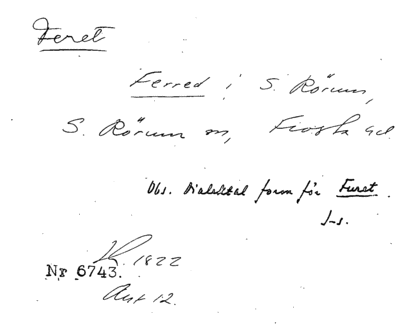 Feret
Ferred i S. Rörum,
S. Rörum sn, Frosta hd.
Obs. Dialektal form för Furet.
J-s.
LR 1822
Nr 6743.
Ant 12.